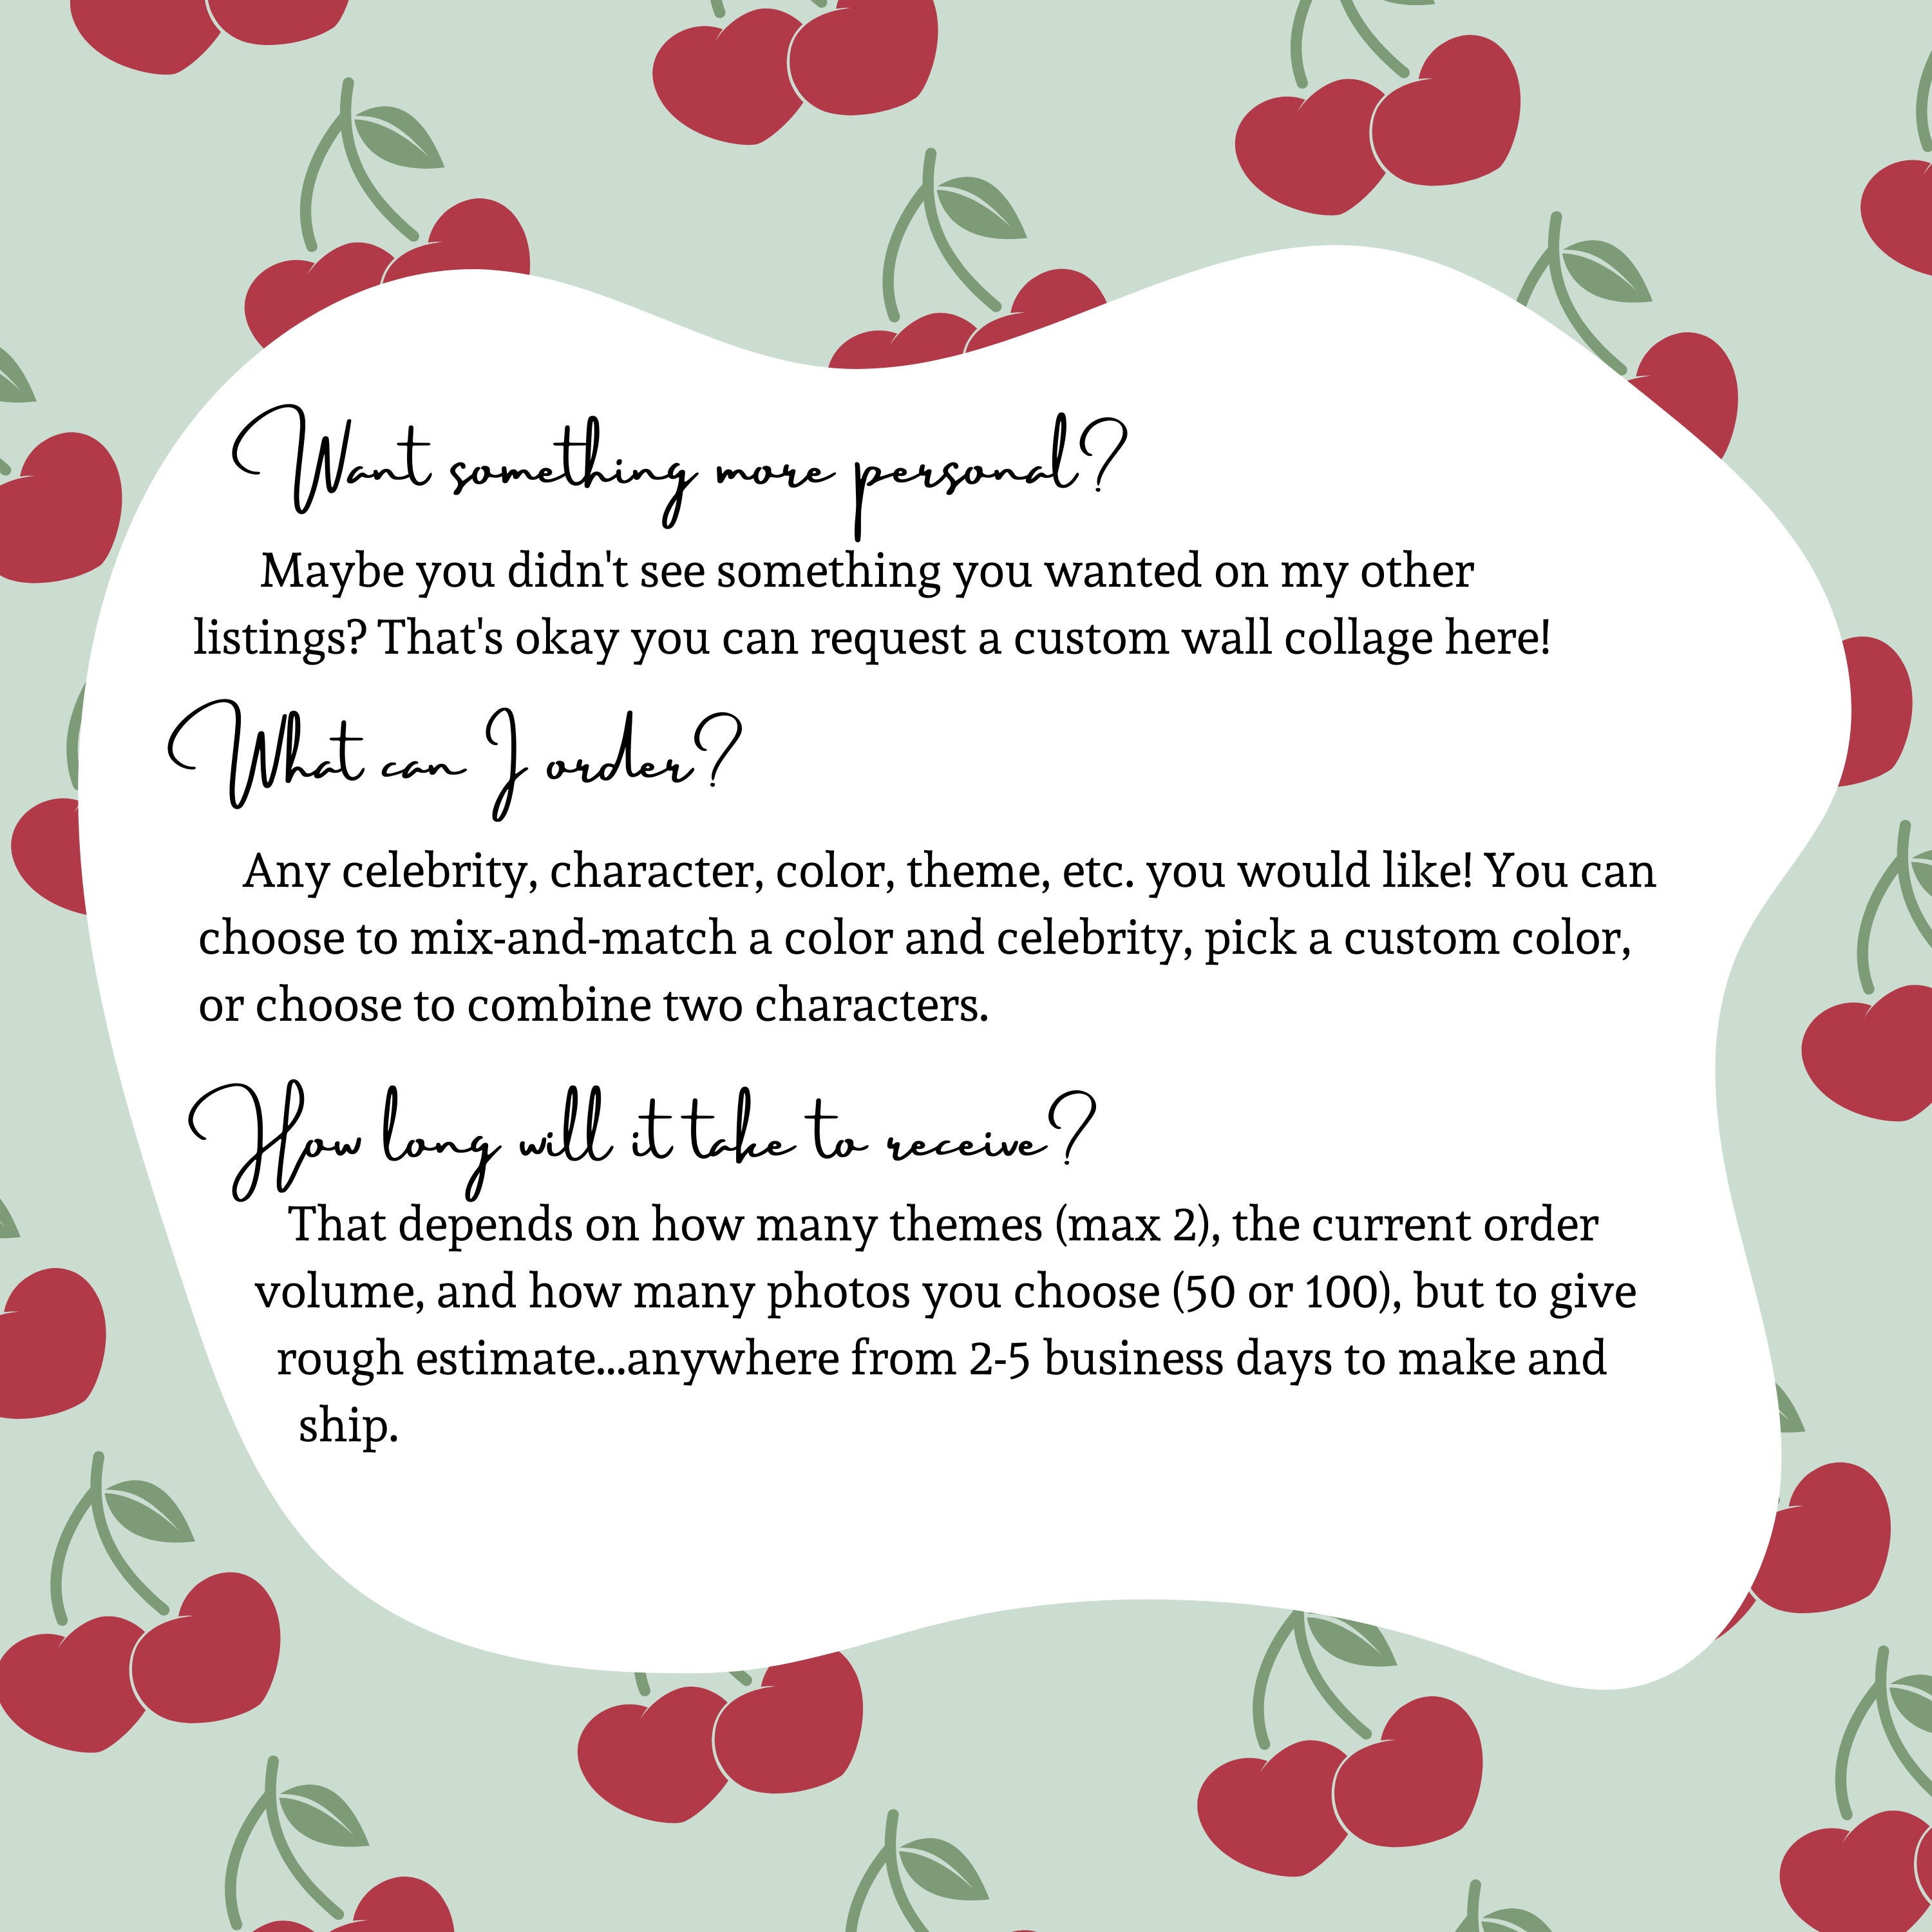 Want something more personal?
Maybe you didn't see something you wanted on my other
listings? That's okay you can request a custom wall collage here!
What can I order?
Any celebrity, character, color, theme, etc. you would like! You can
choose to mix-and-match a color and celebrity, pick a custom color,
or choose to combine two characters.
How long will it take to receive?
That depends on how many themes (max 2), the current order
volume, and how many photos you choose (50 or 100), but to give
rough estimate...anywhere from 2-5 business days to make and
ship.